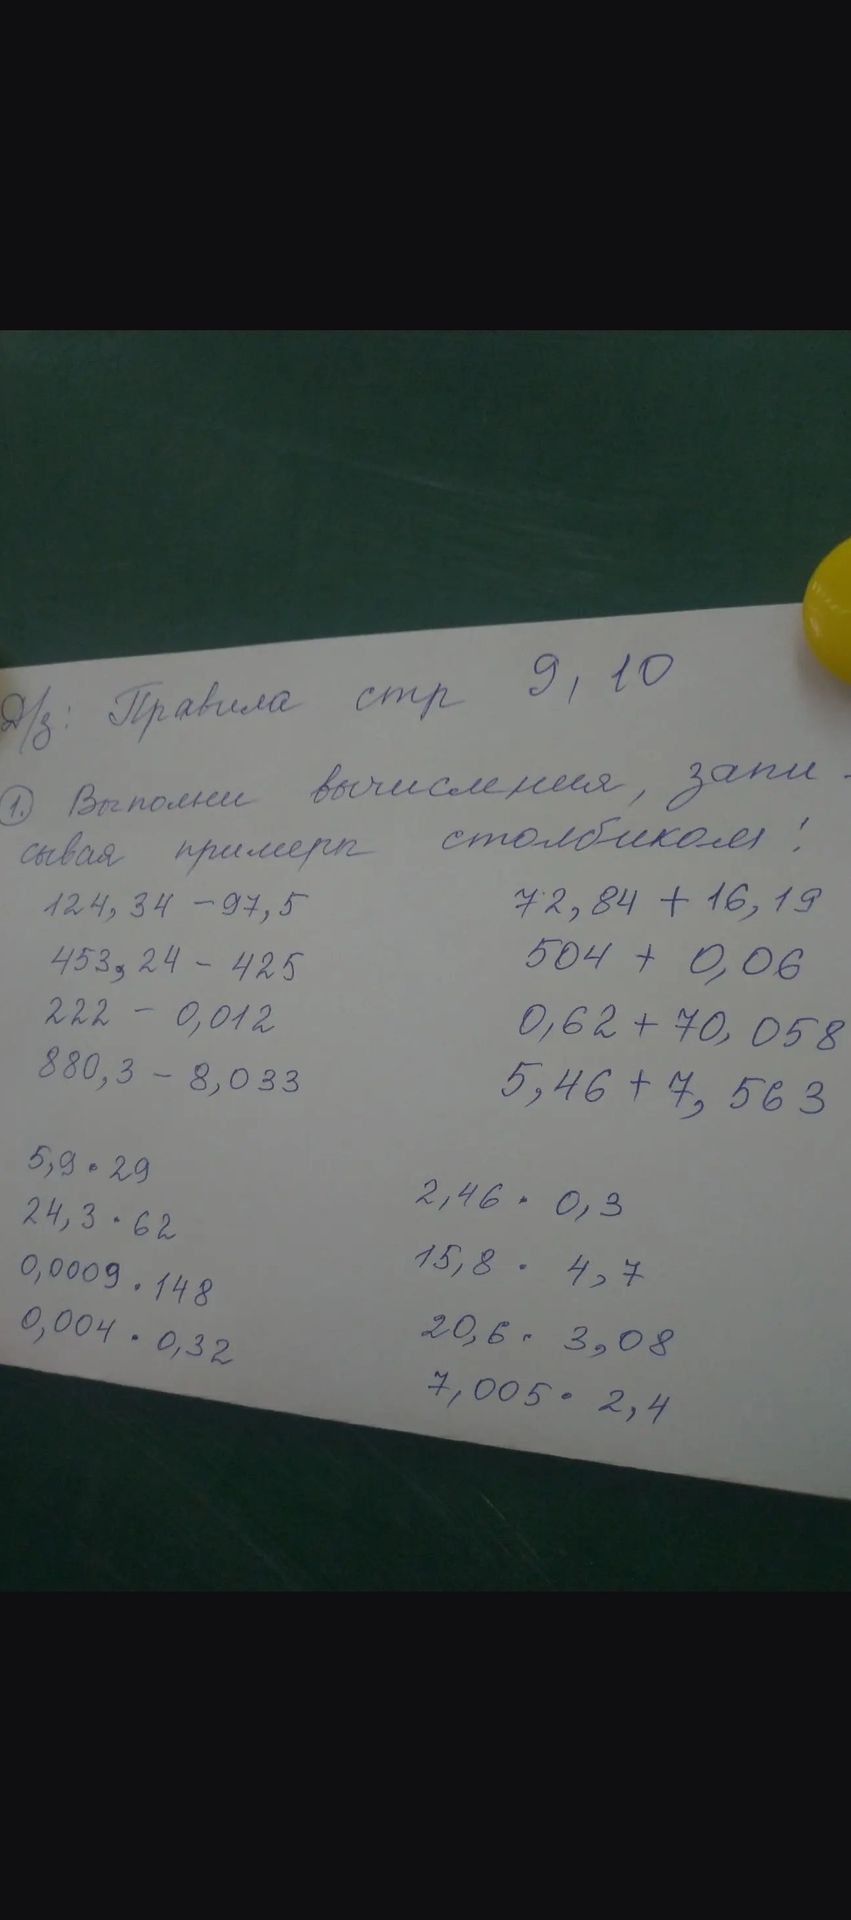 Д/з: Правила стр 9, 10
1. Выполни вычисления, запи-
сывая примеры столбиком!
124,34 - 97,5
72,84 + 16,19
453,24 - 425
504 + 0,06
222 - 0,012
0,62 + 70,058
880,3 - 8,033
5,46 + 7,563
5,9 · 29
2,46 · 0,3
24,3 · 62
15,8 · 4,7
0,0009 · 148
20,6 · 3,08
0,004 · 0,32
7,005 · 2,4